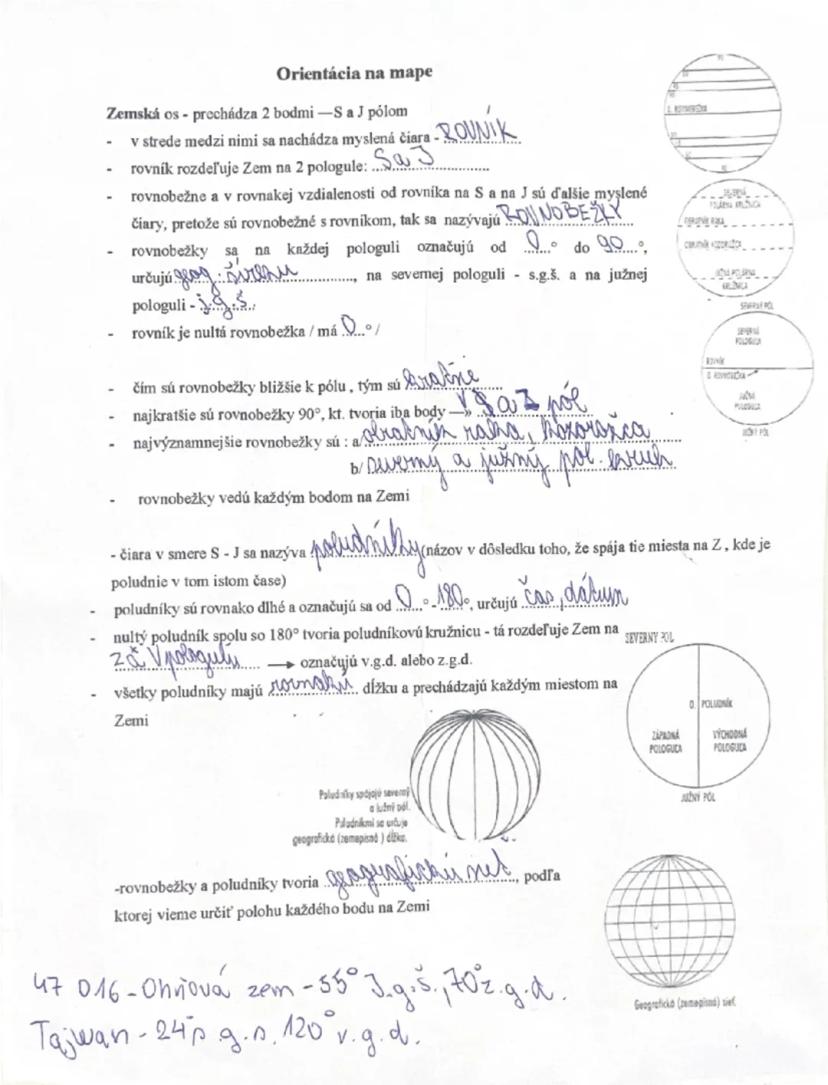 Orientácia na mape
Zemská os - prechádza 2 bodmi — S a J pólom
- v strede medzi nimi sa nachádza myslená čiara - ROVNÍK
- rovník rozdeľuje Zem na 2 pologule: S a J
- rovnobežne a v rovnakej vzdialenosti od rovníka na S a na J sú ďalšie myslené
čiary, pretože sú rovnobežné s rovníkom, tak sa nazývajú ROVNOBEŽKY
- rovnobežky sa na každej pologuli označujú od 0 ° do 90 °,
určujú geog. šírku, na severnej pologuli - s.g.š. a na južnej
pologuli - j.g.š.
- rovník je nultá rovnobežka / má 0 ° /
- čím sú rovnobežky bližšie k pólu , tým sú kratšie
- najkratšie sú rovnobežky 90°, kt. tvoria iba body —» S a J pól
- najvýznamnejšie rovnobežky sú : a/ obratník raka, kozorožca
b/ severný a južný pol. kruh
- rovnobežky vedú každým bodom na Zemi
- čiara v smere S - J sa nazýva poludníky (názov v dôsledku toho, že spája tie miesta na Z , kde je
poludnie v tom istom čase)
- poludníky sú rovnako dlhé a označujú sa od 0 ° - 180 °, určujú čas, dátum
- nultý poludník spolu so 180° tvoria poludníkovú kružnicu - tá rozdeľuje Zem na
Z a V pologuľu → označujú v.g.d. alebo z.g.d.
- všetky poludníky majú rovnakú dĺžku a prechádzajú každým miestom na
Zemi
Poludníky spájajú severný
a južný pól.
Poludníkmi sa určuje
geografická (zemepisná) dĺžka.
-rovnobežky a poludníky tvoria geografickú sieť, podľa
ktorej vieme určiť polohu každého bodu na Zemi
47 016 - Ohňová zem - 55° J.g.š., 70° z.g.d.
Tajwan - 24° s.g.š. 120° v.g.d.
0. ROVNOBEŽKA
SEVERNÁ
POLÁRNA KRUŽNICA
OBRATNÍK RAKA
OBRATNÍK KOZOROŽCA
JUŽNÁ POLÁRNA
KRUŽNICA
SEVERNÝ PÓL
SEVERNÁ
POLOGUĽA
ROVNÍK
0. ROVNOBEŽKA
JUŽNÁ
POLOGUĽA
JUŽNÝ PÓL
SEVERNÝ PÓL
0. POLUDNÍK
ZÁPADNÁ
POLOGUĽA
VÝCHODNÁ
POLOGUĽA
JUŽNÝ PÓL
Geografická (zemepisná) sieť